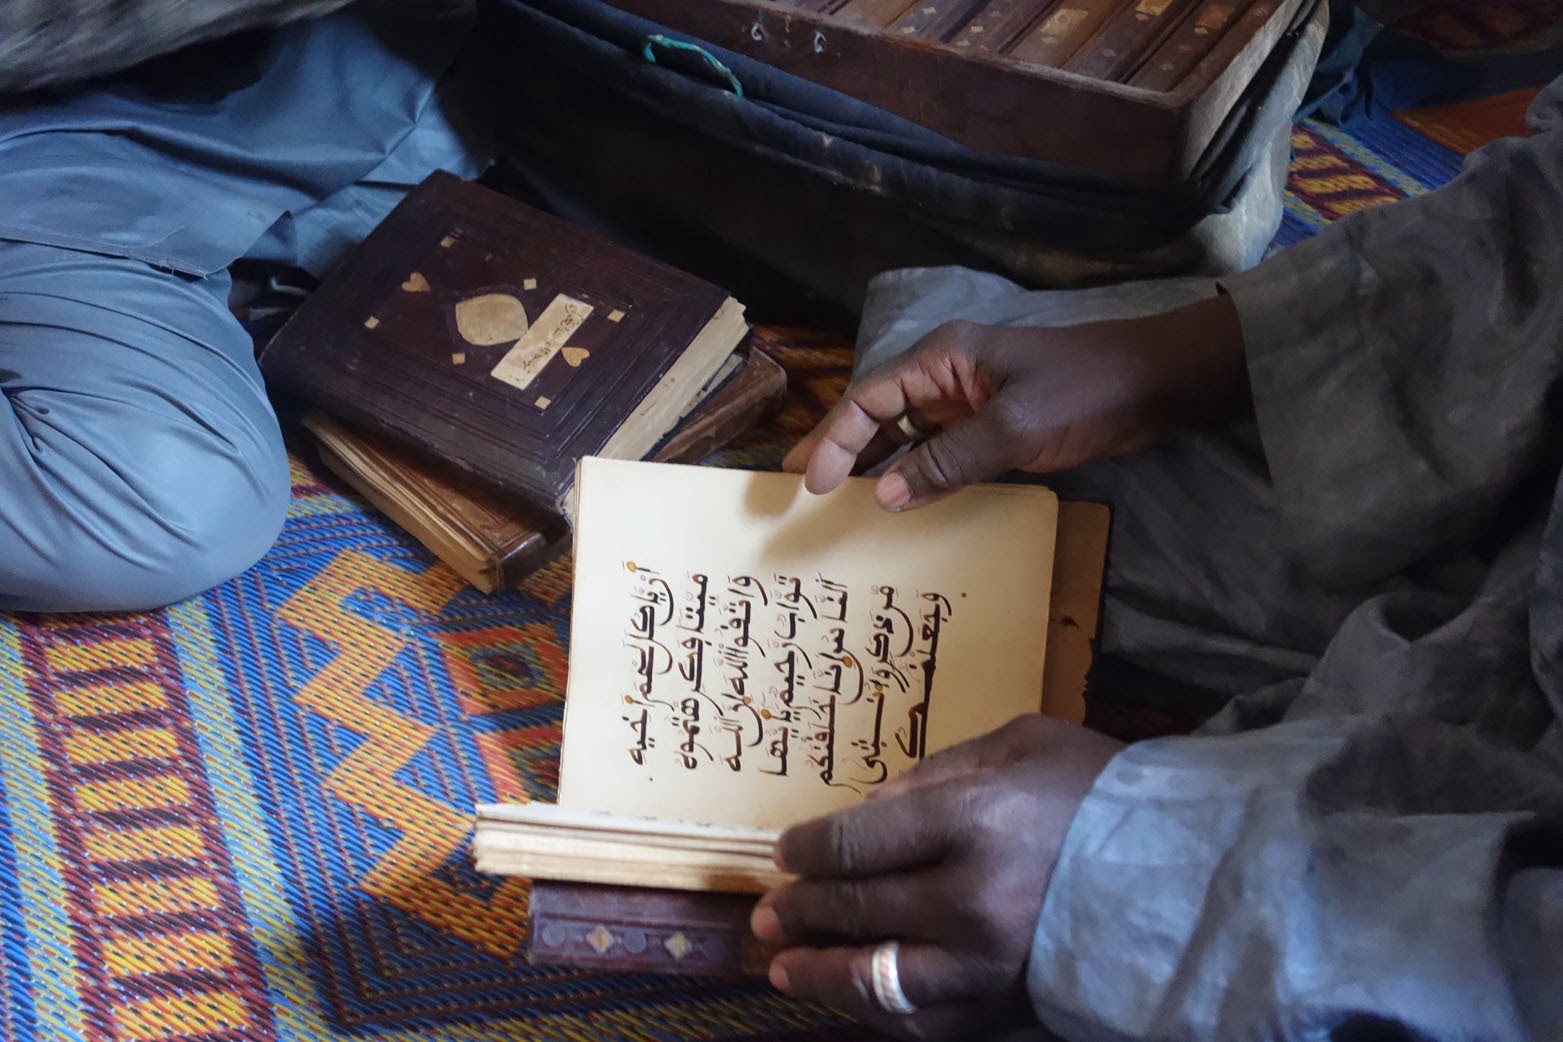 أَنْ يَّاكُلَ لَحْمَ أَخِيهِ
مَيِّتاً فَكَرِهْتُمُوهُ
وَاتَّقُواْ اللَّهَ إِنَّ اللَّهَ
تَوَّابٌ رَّحِيمٌ يَٰأَيُّهَا
النَّاسُ إِنَّا خَلَقْنَٰكُم
مِّن ذَكَرٍ وَأُنثَىٰ
وَجَعَلْنَٰكُمْ